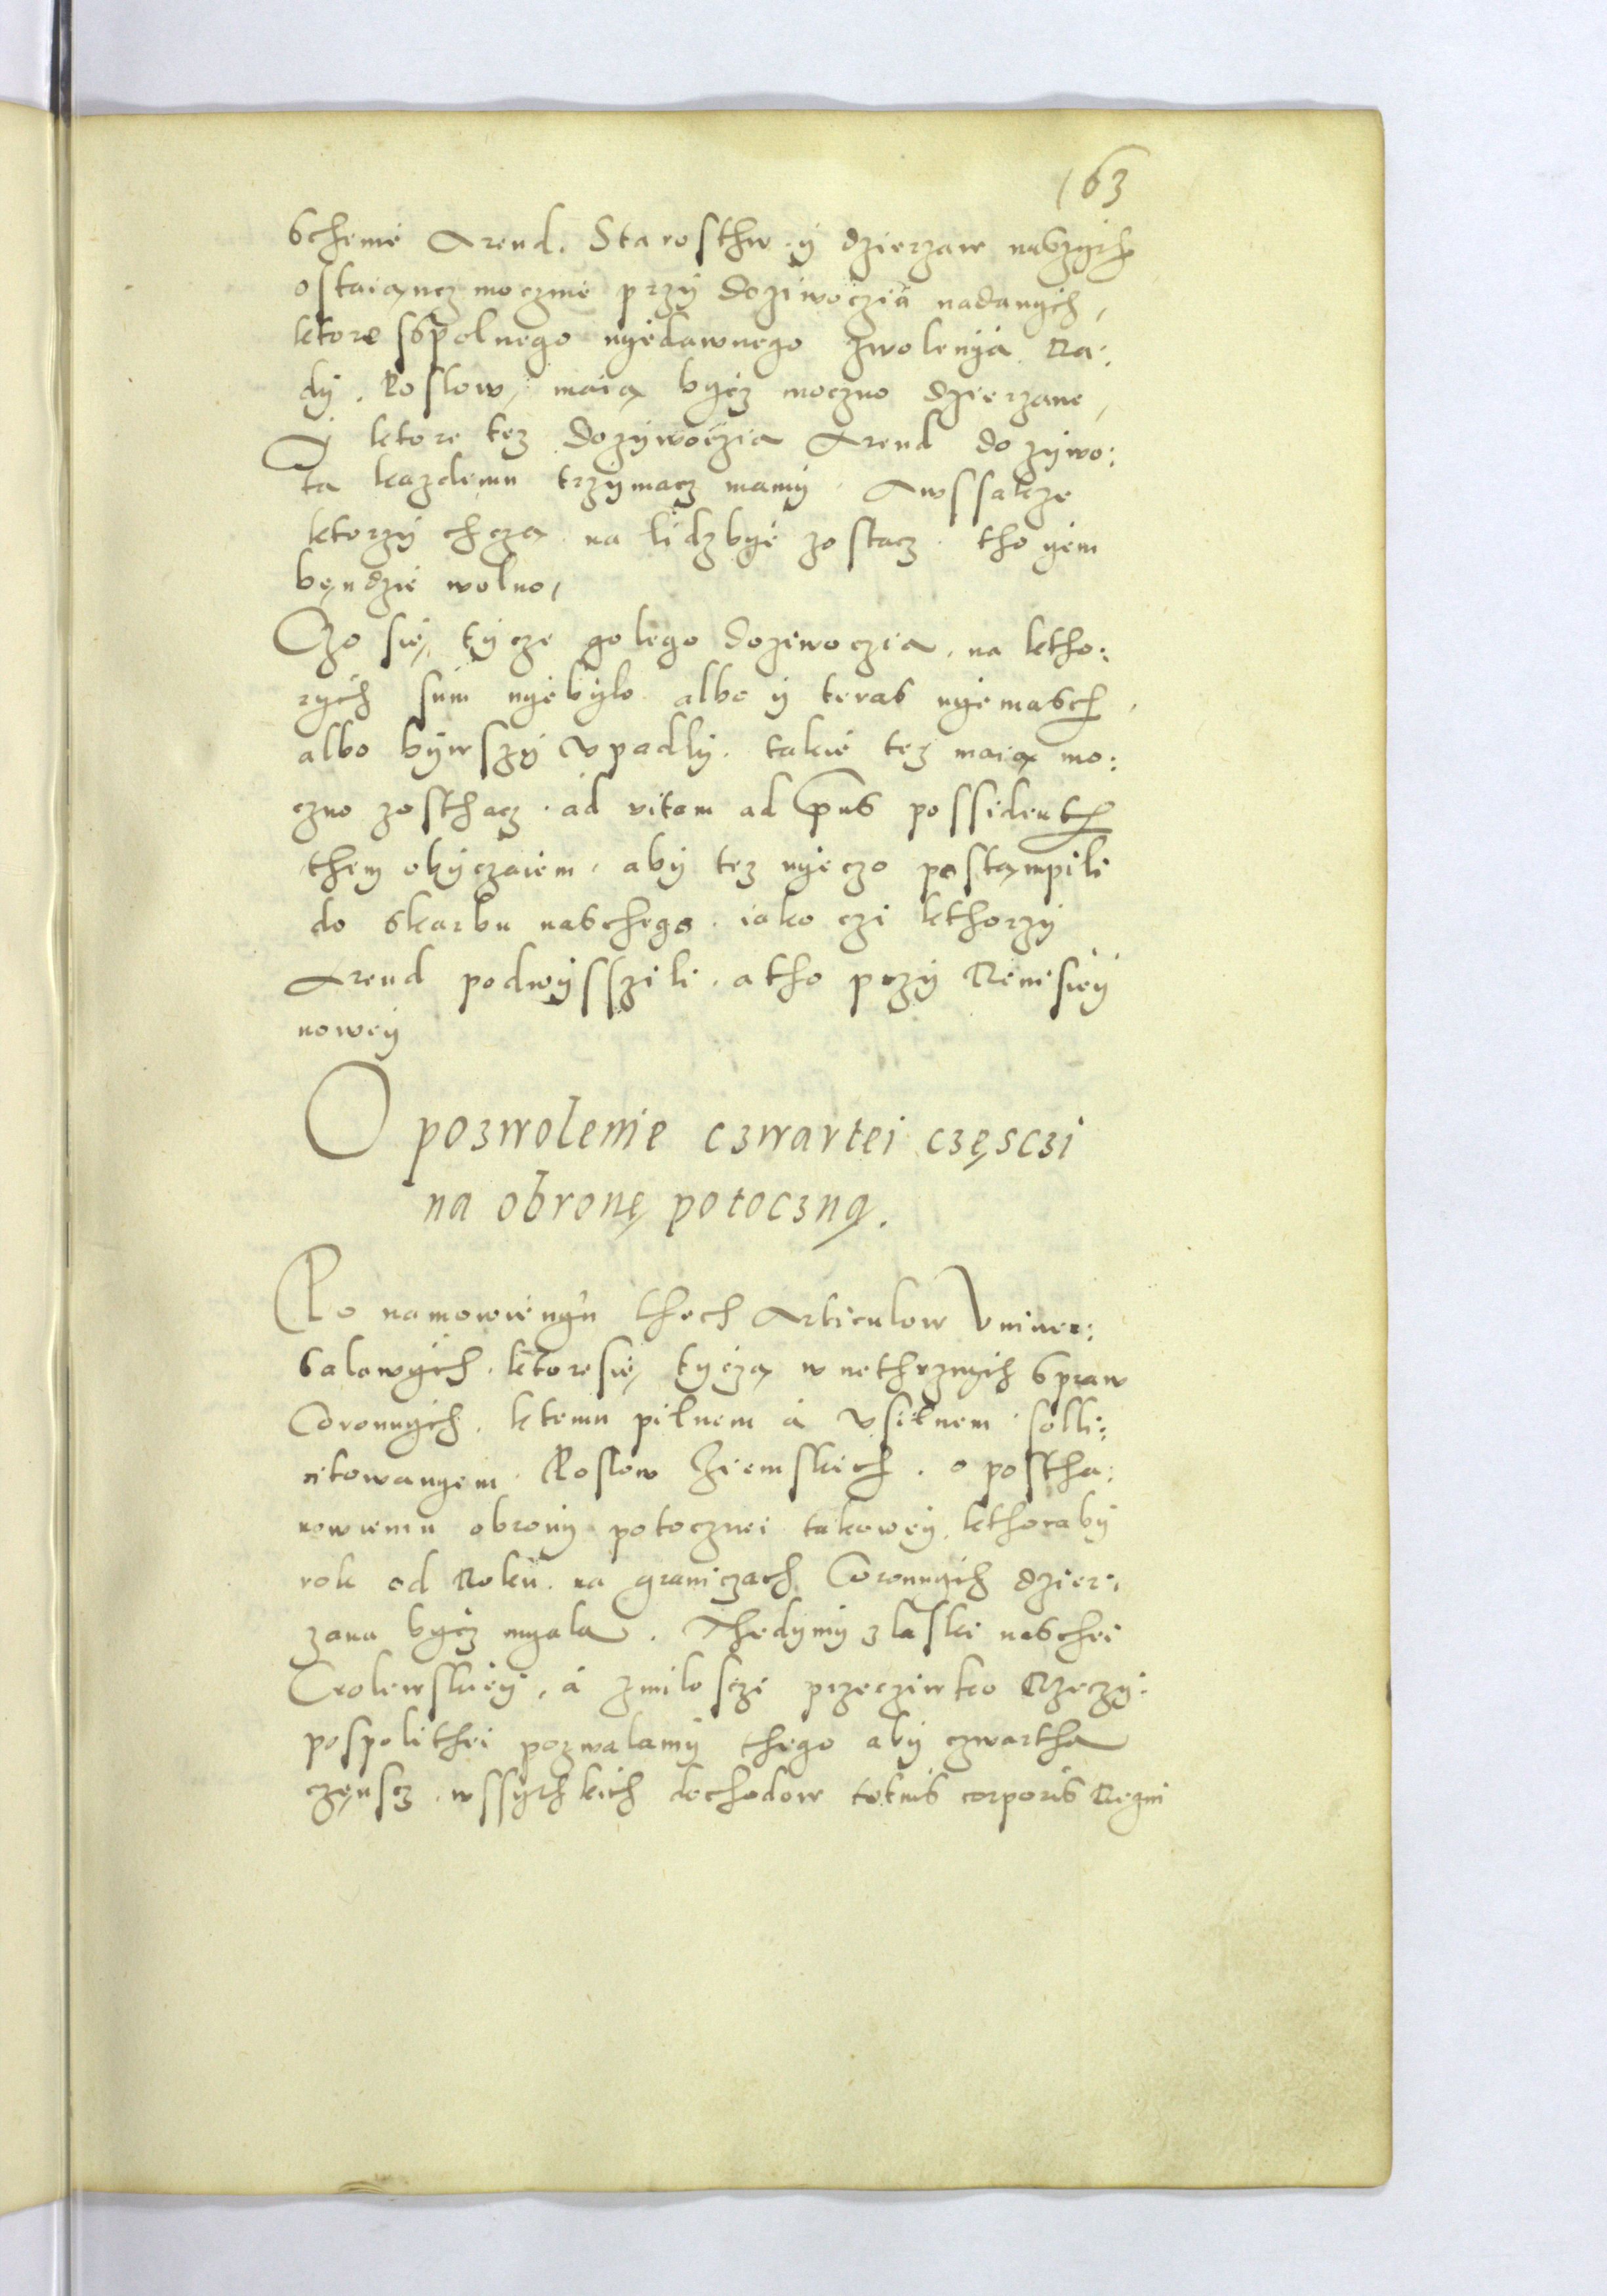 163
scheme Arend. Starosthw ÿ dzierzaw naszÿch
ostaiąncz moczme przÿ doziwoczia nadanÿch,
ktore sspolnego nÿedawnego zwolenÿa Ra:
dÿ. Poslow, maią bÿcz moczno dzierzane,
Y ktore tez dozÿwoczia Arend do zÿwo:
ta kazdemu trzÿmacz mamÿ. Awssakze
ktorzÿ chczą na lidzbÿe zostacz. tho ÿem
bęndzie wolno,
Czo się tÿcze golego doziwoczia, na ktho:
rÿch sum nÿebÿlo albo ÿ teras nÿemasch,
albo bÿwszÿ vpadlÿ. takie tez maią mo:
czno zosthacz. ad vitam ad pns possident
them obÿczaiem. abÿ tez nÿeczo postąmpili
do skarbu naschego. iako czi kthorzÿ
Arend podwÿsszili. atho przÿ Remisiÿ
noweÿ
O pozwolenie czwartei częsczi
na obronę potoczną.
Po namowienÿu thech Articulow Vniuer:
salowÿch. ktoresię tÿczą wnethrznÿch spraw
Coronnÿch. ktemu pilnem á vsilnem solli:
citowanÿem Poslow Ziemskich. o postha:
nowieniu obronÿ potocznei takoweÿ kthorabÿ
rok od Roku. na graniczach Coronnÿch dzier:
zana bÿcz mÿala. Thedÿmÿ z laski naschei
Crolewskieÿ, á zmilosczi przecziwko Rzeczÿ:
pospolithei pozwalamÿ thego abÿ czwartha
częnscz wssÿthkich dochodow totius corporis Regni